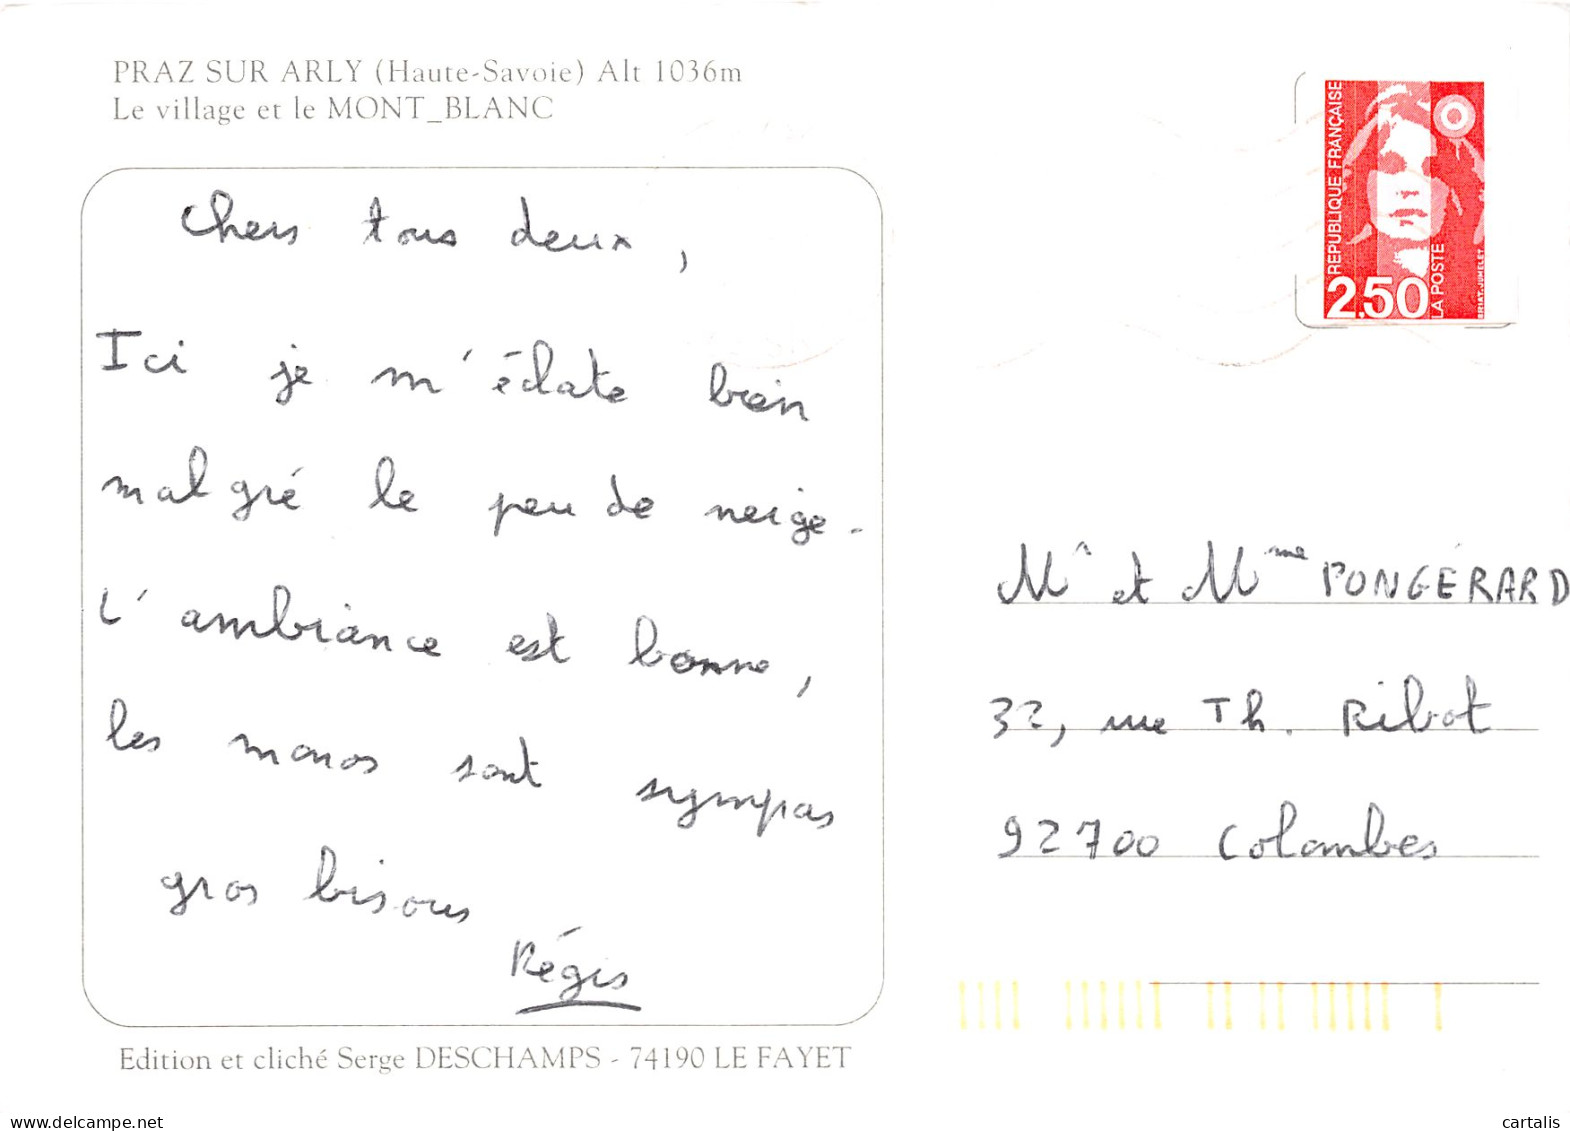 PRAZ SUR ARLY (Haute-Savoie) Alt 1036m
Le village et le MONT_BLANC
Chers tous deux,
Ici je m'éclate bien
malgré le peu de neige.
L'ambiance est bonne,
les monos sont sympas
gros bisous
Régis
Edition et cliché Serge DESCHAMPS - 74190 LE FAYET
REPUBLIQUE FRANÇAISE
2,50
LA POSTE
BRIAT-JUMELET
Mr et Mme PONGÉRARD
32, rue Th. Ribot
92700 Colombes
www.delcampe.net
cartalis